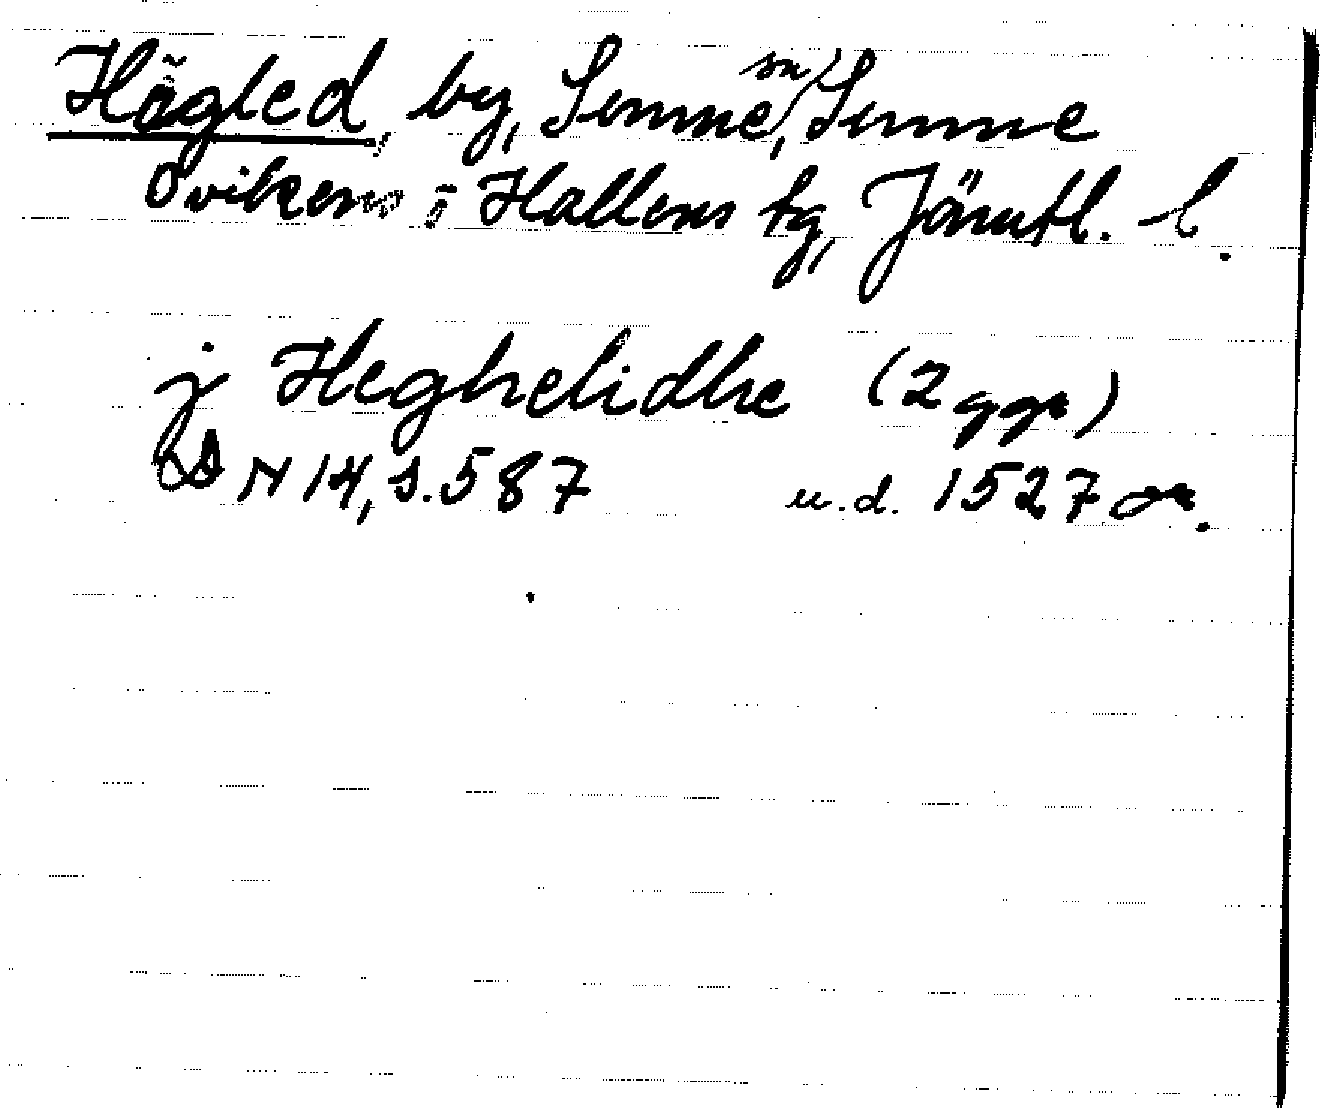 Högled by, Sunne sn, Sunne
Oviken o Hallens tg, Jämtl. l.
j Heghelidhe (2 ggr)
DN 14, s. 587 u.d. 1527 or.